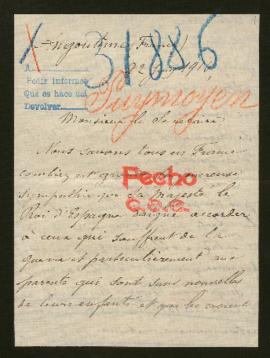 Angoulême France
31886
A
Pedir informes
Que se hace así
Devolver
Puymoyen
Monsieur le
Nous savons tous en France
combien est
sympathie que Sa Majesté le
Fecho
Roi d'Espagne daigne accorder
C.E.C.
à ceux qui souffrent de la
guerre et particulièrement aux
parents qui sont sans nouvelles
de leurs enfants et qui les croient